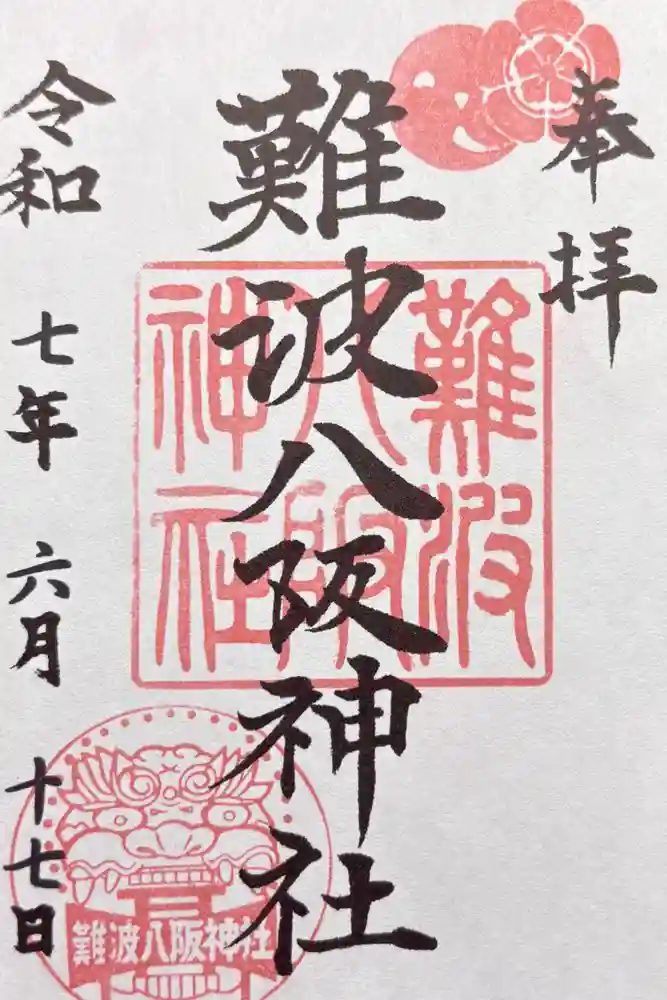 奉拝
難波八阪神社
難波八阪神社
令和七年六月十七日
難波八阪神社